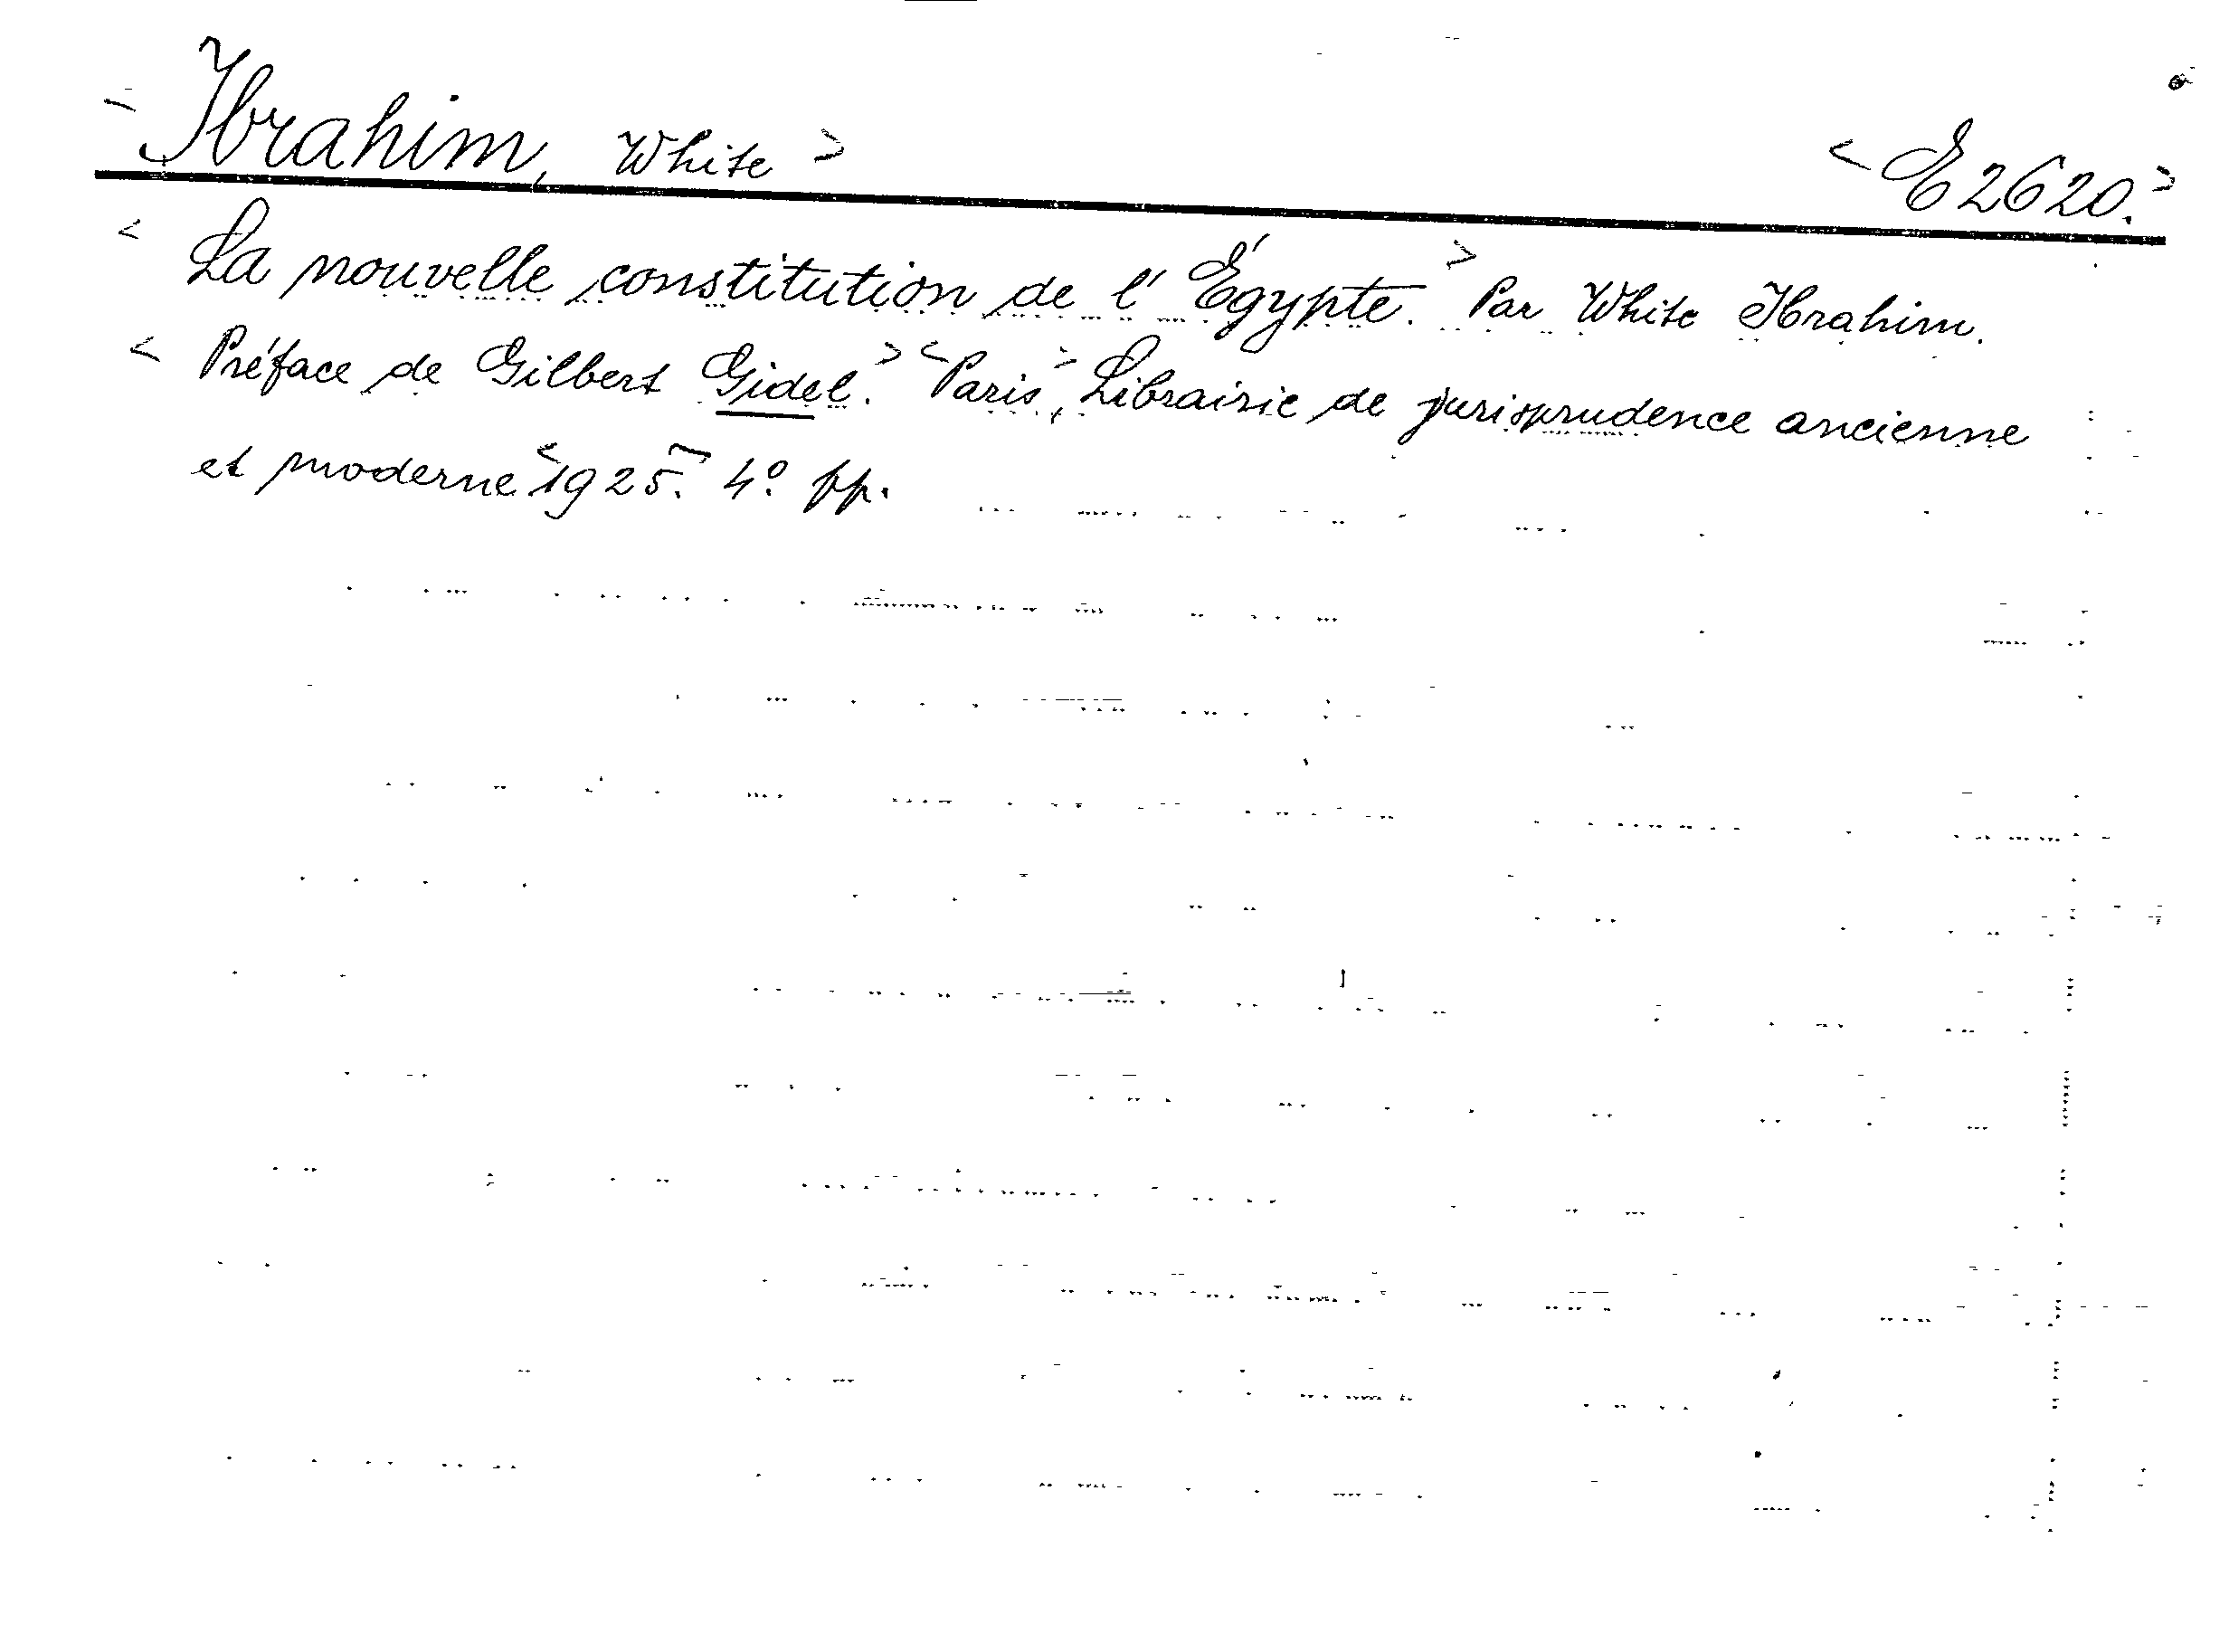 <Ibrahim, White> <E2620.>
<La nouvelle constitution de l'Égypte.> Par White Ibrahim.
<Préface de Gilbert Gidel.> <Paris>, Librairie de jurisprudence ancienne
et moderne <1925>. 4º. pp.